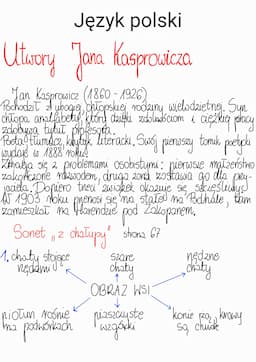 Język polski
Utwory Jana Kasprowicza
Jan Kasprowicz (1860-1926)
Pochodził z ubogiej chłopskiej rodziny wielodzietnej. Syn
chłopa analfabety, który dzięki zdolnościom i ciężkiej pracy
zdobywa tytuł profesora.
Poeta, tłumacz, krytyk literacki. Swój pierwszy tomik poezji
wydaje w 1888 roku.
Zmaga się z problemami osobistymi: pierwsze małżeństwo
zakończone rozwodem, druga żona zostawia go dla przy-
jaciela. Dopiero trzeci związek okazuje się szczęśliwy.
W 1903 roku przenosi się na stałe na Podhale, tam
zamieszkał na Harendzie pod Zakopanem.
Sonet „z chałupy" strona 67
1. chaty stojące szare nędzne
rzędami chaty chaty
OBRAZ WSI
piołun rośnie piaszczyste konie przy krowy
na podwórkach wzgórki są chude